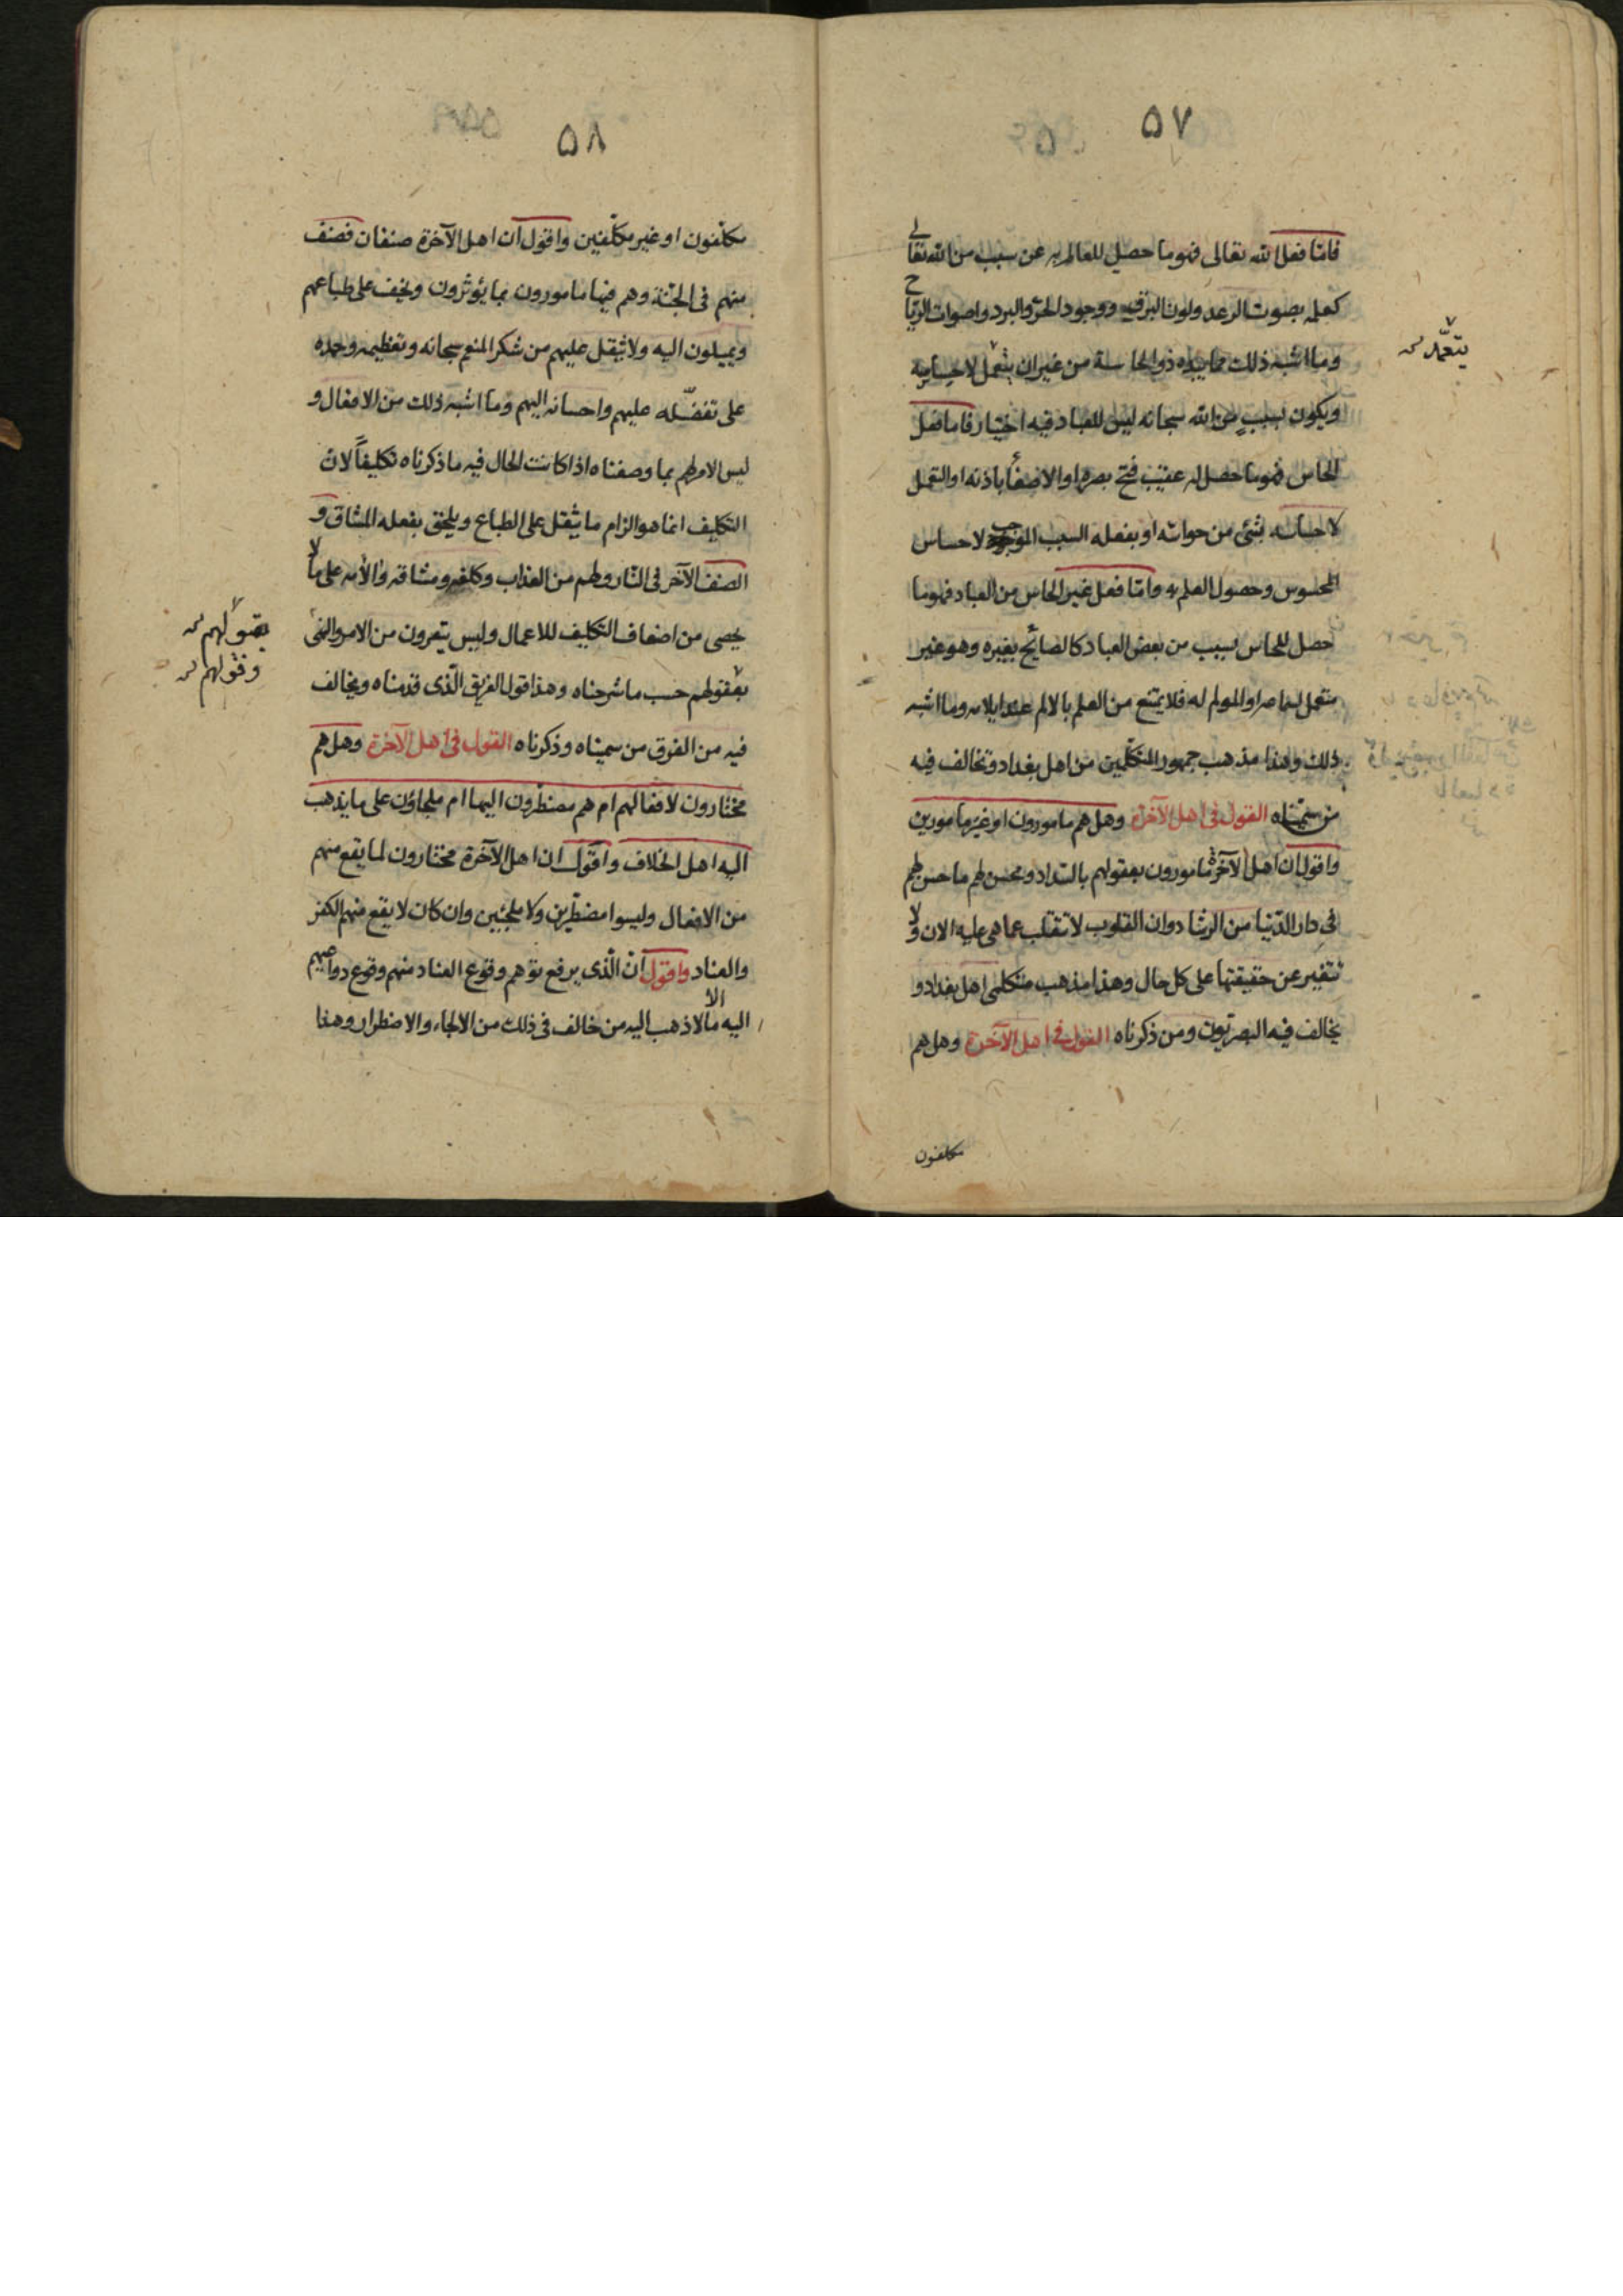 ٥٧
فاما فعل الله تعالى فهو ما حصل للعالم به عن سبب من الله تعالى
كعلمه بصوت الرعد ولون البرق ووجود الحر والبرد واصوات الرياح
وما اشبه ذلك مما يبده ذو الحاسة من غير ان يتعمل لاحساسه
يتعمّد
ويكون بسبب من الله سبحانه ليس للعباد فيه اختيار فاما فعل
الحاس فهو ما حصل له عقيب فتح بصره او الاصغاء باذنه او التعمل
لاحساسه بشئ من حواسه او بفعله السبب الموجب لاحساس
المحسوس وحصول العلم به واما فعل غير الحاس من العباد فهو ما
حصل للحاس بسبب من بعض العباد كالصائح بغيره وهو غير
متعمل لسماعه او المولم له فلا يمتنع من العلم بالالم عند ايلامه وما اشبه
ذلك وهذا مذهب جمهور المتكلمين من اهل بغداد وتخالف فيه
من سميناه القول في اهل الآخرة وهل هم مامورون او غير مامورين
واقول ان اهل الآخرة مامورون بعقولهم بالسداد ومحسن لهم ما حسن لهم
في دار الدنيا من الرشاد وان القلوب لا تنقلب عما هي عليه الان ولا
تتغير عن حقيقتها على كل حال وهذا مذهب متكلمى اهل بغداد و
يخالف فيه البصريون ومن ذكرناه القول في اهل الآخرة وهل هم
مكلفون
٥٨
مكلّفون او غير مكلّفين واقول ان اهل الآخرة صنفان فصنف
منهم في الجنّة وهم فيها مامورون بما يؤثرون ويخف على طباعهم
ويميلون اليه ولا يثقل عليهم من شكر المنعم سبحانه وتعظيمه وحمده
على تفضّله عليهم واحسانه اليهم وما اشبه ذلك من الافعال و
ليس الامر لهم بما وصفناه اذا كانت الحال فيه ما ذكرناه تكليفاً لان
التكليف انما هو الزام ما يثقل على الطباع ويلحق بفعله المشاق و
الصنف الآخر في النار وهم من العذاب وكلفه ومشاقه وآلامه على ما لا
يحصى من اضعاف التكليف للاعمال وليس يتعرون من الامر والنهى
بعقولهم حسب ما شرحناه وهذا قول الفريق الّذى قدمناه ويخالف
فيه من الفرق من سميناه وذكرناه القول في اهل الآخرة وهل هم
مختارون لافعالهم ام هم مضطرون اليها ام ملجاؤن على ما يذهب
اليه اهل الخلاف واقول ان اهل الآخرة مختارون لما يقع منهم
من الافعال وليسوا مضطرين ولا ملجئين وان كان لا يقع منهم الكفر
والعناد واقول انّ الّذى يرفع توهم وقوع العناد منهم وقوع دواعيهم
اليه الا ما لا ذهب اليه من خالف في ذلك من الالجاء والاضطرار وهذا